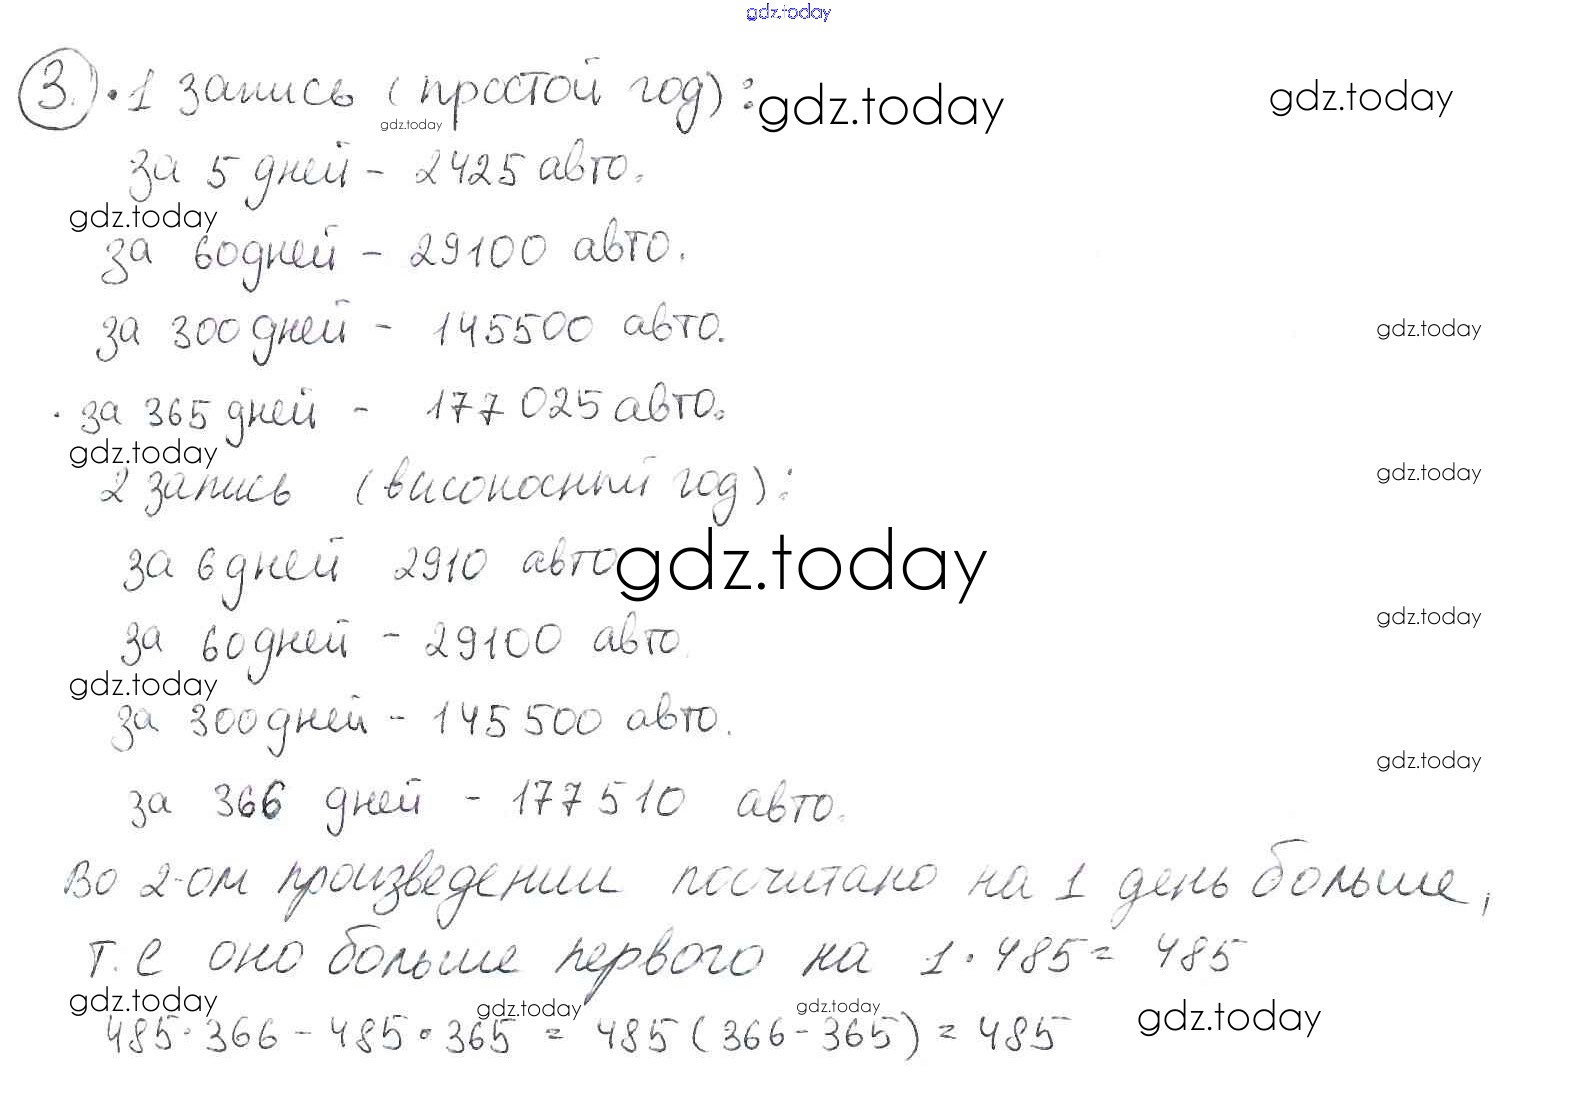 gdz.today
3. • 1 запись (простой год): gdz.today gdz.today
gdz.today
за 5 дней - 2425 авто.
gdz.today
за 60 дней - 29100 авто.
за 300 дней - 145500 авто.
gdz.today
• за 365 дней - 177025 авто.
gdz.today
2 запись (високосный год):
gdz.today
за 6 дней 2910 авто
gdz.today
gdz.today
за 60 дней - 29100 авто
gdz.today
за 300 дней - 145500 авто.
gdz.today
за 366 дней - 177510 авто.
Во 2-ом произведении посчитано на 1 день больше,
т.е оно больше первого на 1 • 485 = 485
gdz.today gdz.today gdz.today gdz.today
485 • 366 - 485 • 365 = 485 (366 - 365) = 485